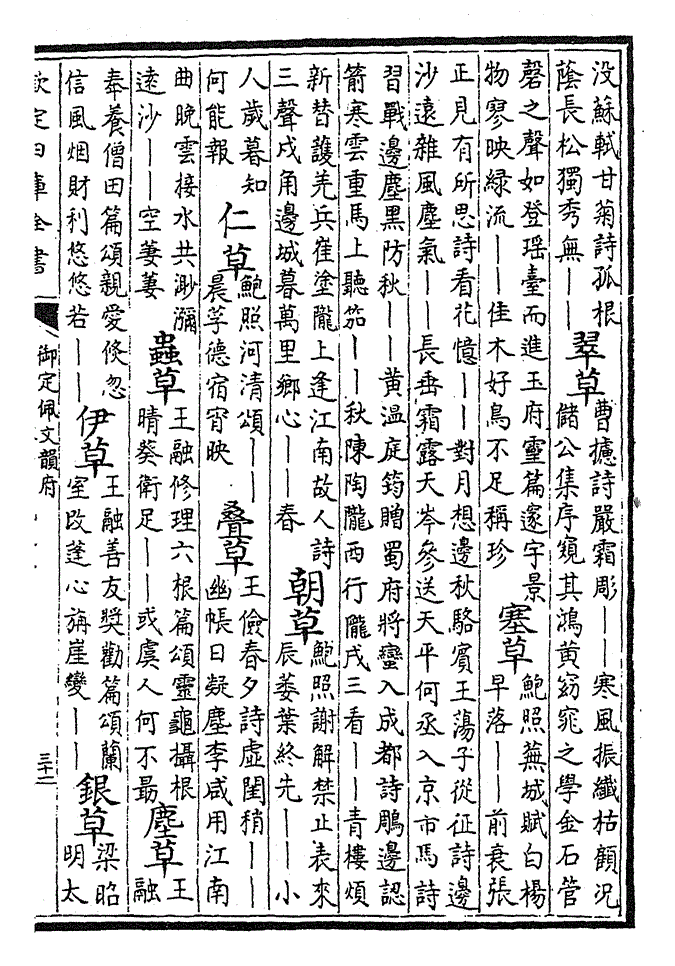 没蘇軾甘菊詩孤根
蔭長松獨秀無——
翠草
曹攄詩嚴霜彫——寒風振纖枯顧况
儲公集序窺其鴻黄窈窕之學金石管
磬之聲如登瑶臺而進玉府靈篇邃宇景
物寥映緑流——佳木好鳥不足稱珍
塞草
鮑照蕪城賦白楊
早落——前衰張
正見有所思詩看花憶——對月想邊秋駱賓王蕩子從征詩邊
沙遠雜風塵氣——長垂霜露天岑參送天平何丞入京市馬詩
習戰邊塵黑防秋——黄温庭筠贈蜀府將蠻入成都詩鵰邊認
箭寒雲重馬上聽笳——秋陳陶隴西行隴戍三看——青樓煩
新替護羌兵崔塗隴上逢江南故人詩
三聲戍角邊城暮萬里鄉心——春
朝草
鮑照謝解禁止表來
辰萎葉終先——小
人歲暮知
何能報
仁草
鮑照河清頌——
晨孚德宿宵映
疊草
王儉春夕詩虚閨稍——
幽帳日凝塵李咸用江南
曲晩雲接水共渺瀰
遠沙——空萋萋
蟲草
王融修理六根篇頌靈龜攝根
晴葵衛足——或虞人何不最
塵草
王融
奉養僧田篇頌親愛倏忽
信風烟財利悠悠若——
伊草
王融善友奬勸篇頌蘭
室改蓬心旃崖變——
銀草
梁昭
明太
欽定四庫全書
御定佩文韻府
三十二